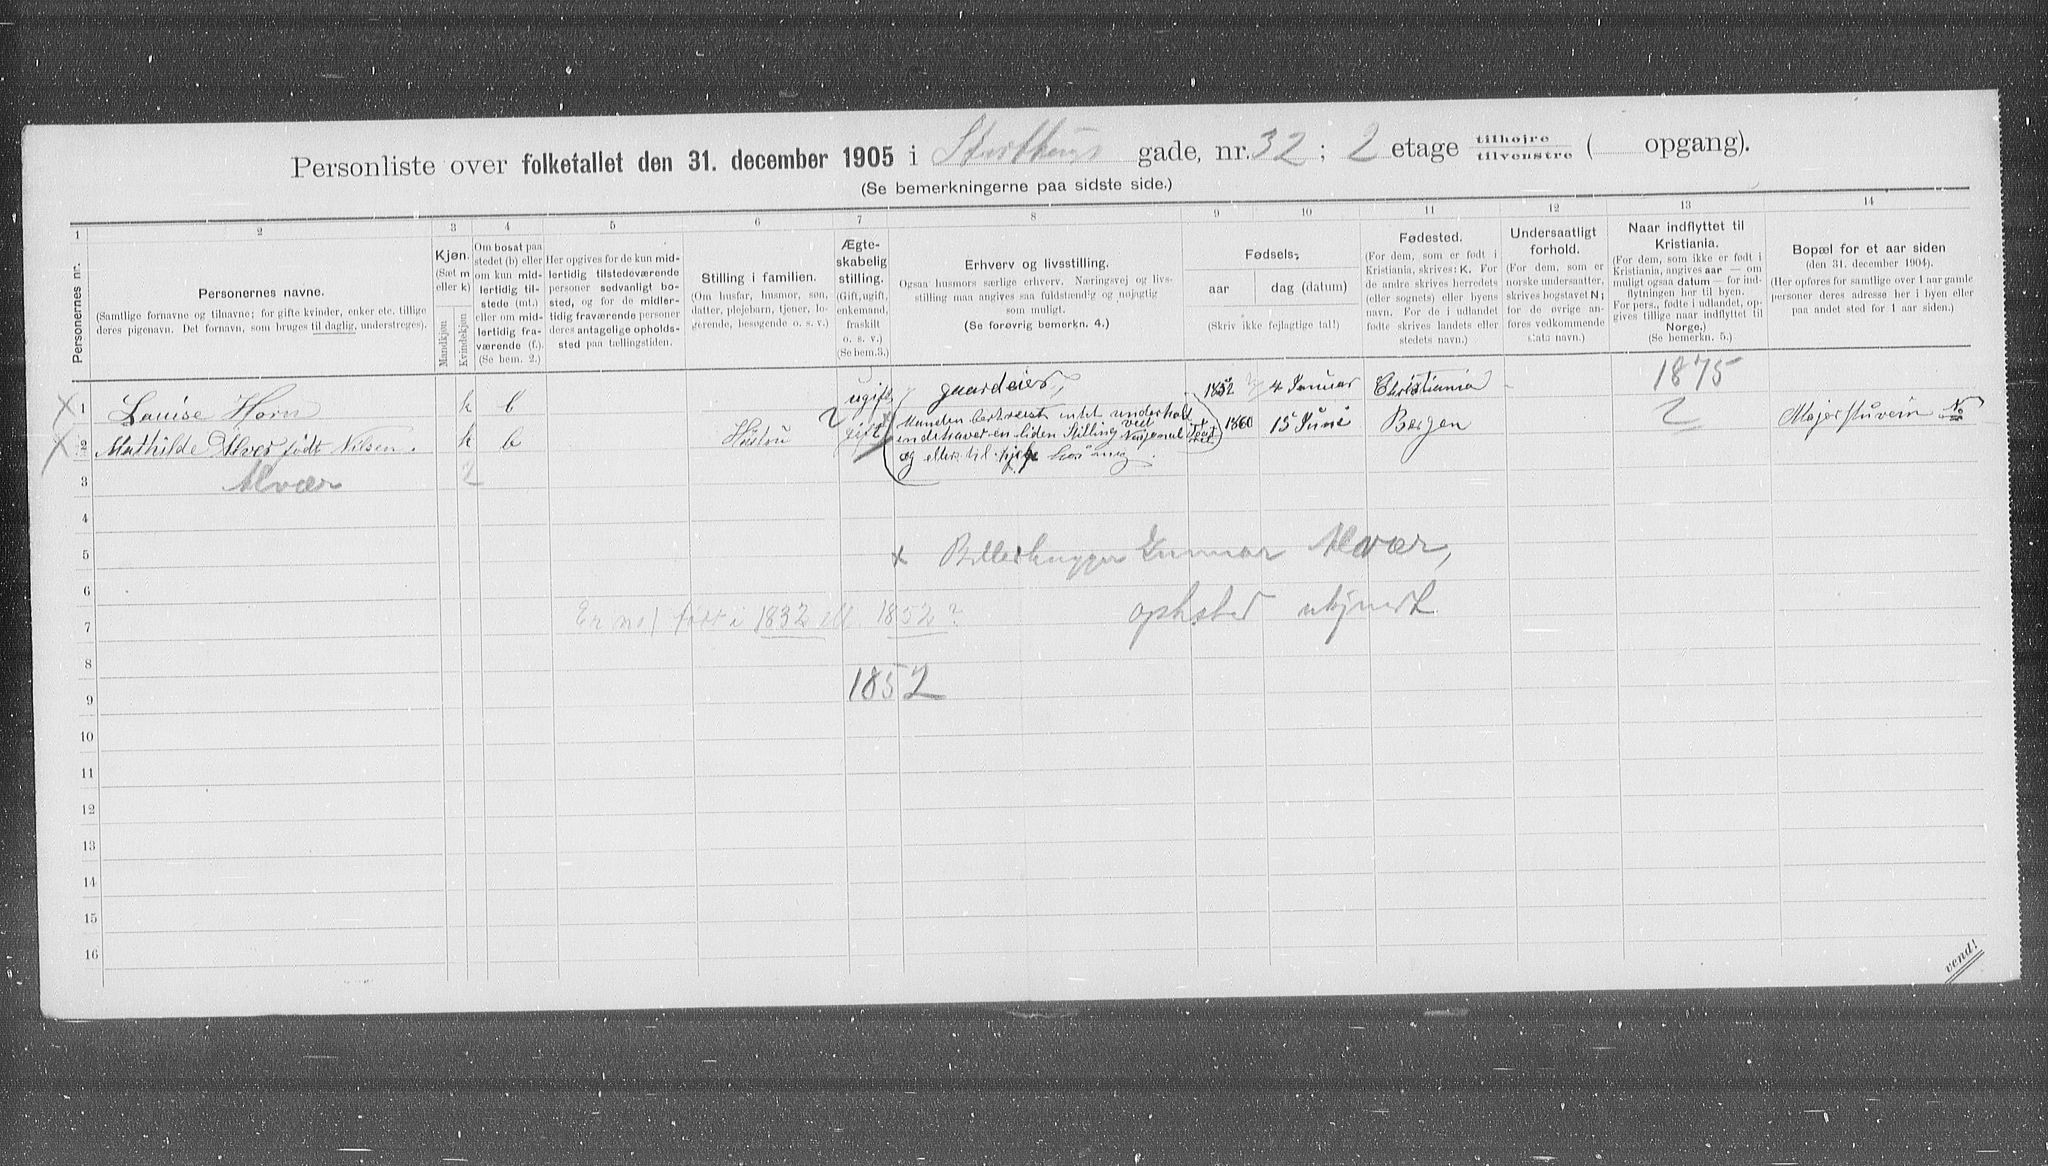 Personliste over folketallet den 31. december 1905 i Storthings gade, nr. 32; 2 etage tilhøjre tilvenstre ( opgang).
(Se bemerkningerne paa sidste side.)
1 2 3 4 5 6 7 8 9 10 11 12 13 14
Personernes nr.
Personernes navne.
(Samtlige fornavne og tilnavne; for gifte kvinder, enker etc. tillige
deres pigenavn. Det fornavn, som bruges til daglig, understreges).
Kjøn.
(Sæt m
eller k)
Mandkjøn
Kvindekjøn
Om bosat paa
stedet (b) eller
om kun mid-
lertidig til-
stede (mt.)
eller om mid-
lertidig fra-
værende (f.)
(Se bem. 2.)
Her opgives for de kun mid-
lertidig tilstedeværende
personer sedvanligt bo-
sted, og for de midler-
tidig fraværende personer
deres antagelige opholds-
sted paa tællingstiden.
Stilling i familien.
(Om husfar, husmor, søn,
datter, plejebarn, tjener, lo-
gerende, besøgende o. s. v.)
Ægte-
skabelig
stilling.
(Gift, ugift,
enkemand,
fraskilt
o. s. v.)
(Se bem. 3.)
Erhverv og livsstilling.
Ogsaa husmors særlige erhverv. Næringsvej og livs-
stilling maa angives saa fuldstændig og nøjagtig
som muligt.
(Se forøvrig bemerkn. 4.)
Fødsels-
aar
dag (datum)
(Skriv ikke fejlagtige tal!)
Fødested.
(For dem, som er født i
Kristiania, skrives: K. For
de andre skrives herredets
(eller sognets) eller byens
navn. For de i udlandet
fødte skrives landets eller
stedets navn.)
Undersaatligt
forhold.
(For dem, som er
norske undersaatter,
skrives bogstavet N;
for de øvrige an-
føres vedkommende
stats navn.)
Naar indflyttet til
Kristiania.
(For dem, som ikke er født i
Kristiania, angives aar — om
muligt ogsaa datum — for ind-
flytningen her til byen.
For pers., fødte i udlandet, op-
gives tillige naar indflyttet til
Norge.)
(Se bemerkn. 5.)
Bopæl for et aar siden
(den 31. december 1904).
(Her opføres for samtlige over 1 aar gamle
personer deres adresse her i byen eller
paa andet sted for 1 aar siden.)
1875
1 Louise Horn k b ugift gaardeier, 1852 4 Januar Christiania
2 Mathilde Alver født Nilsen. k b gift 1860 15 Juni Bergen 2 Majorstuvein No
Manden bortreist intet underhold
indehaver en liden Stilling ved Nasjonal
og ellers til hjelp hos mig.
3 Alvær 2
4
5 x Billedhugger Gunnar Alvær,
6
7 Er no 1 født i 1832 ell 1852? opholdssted ukjendt
8
1852
9
10
11
12
13
14
15
16
vend!